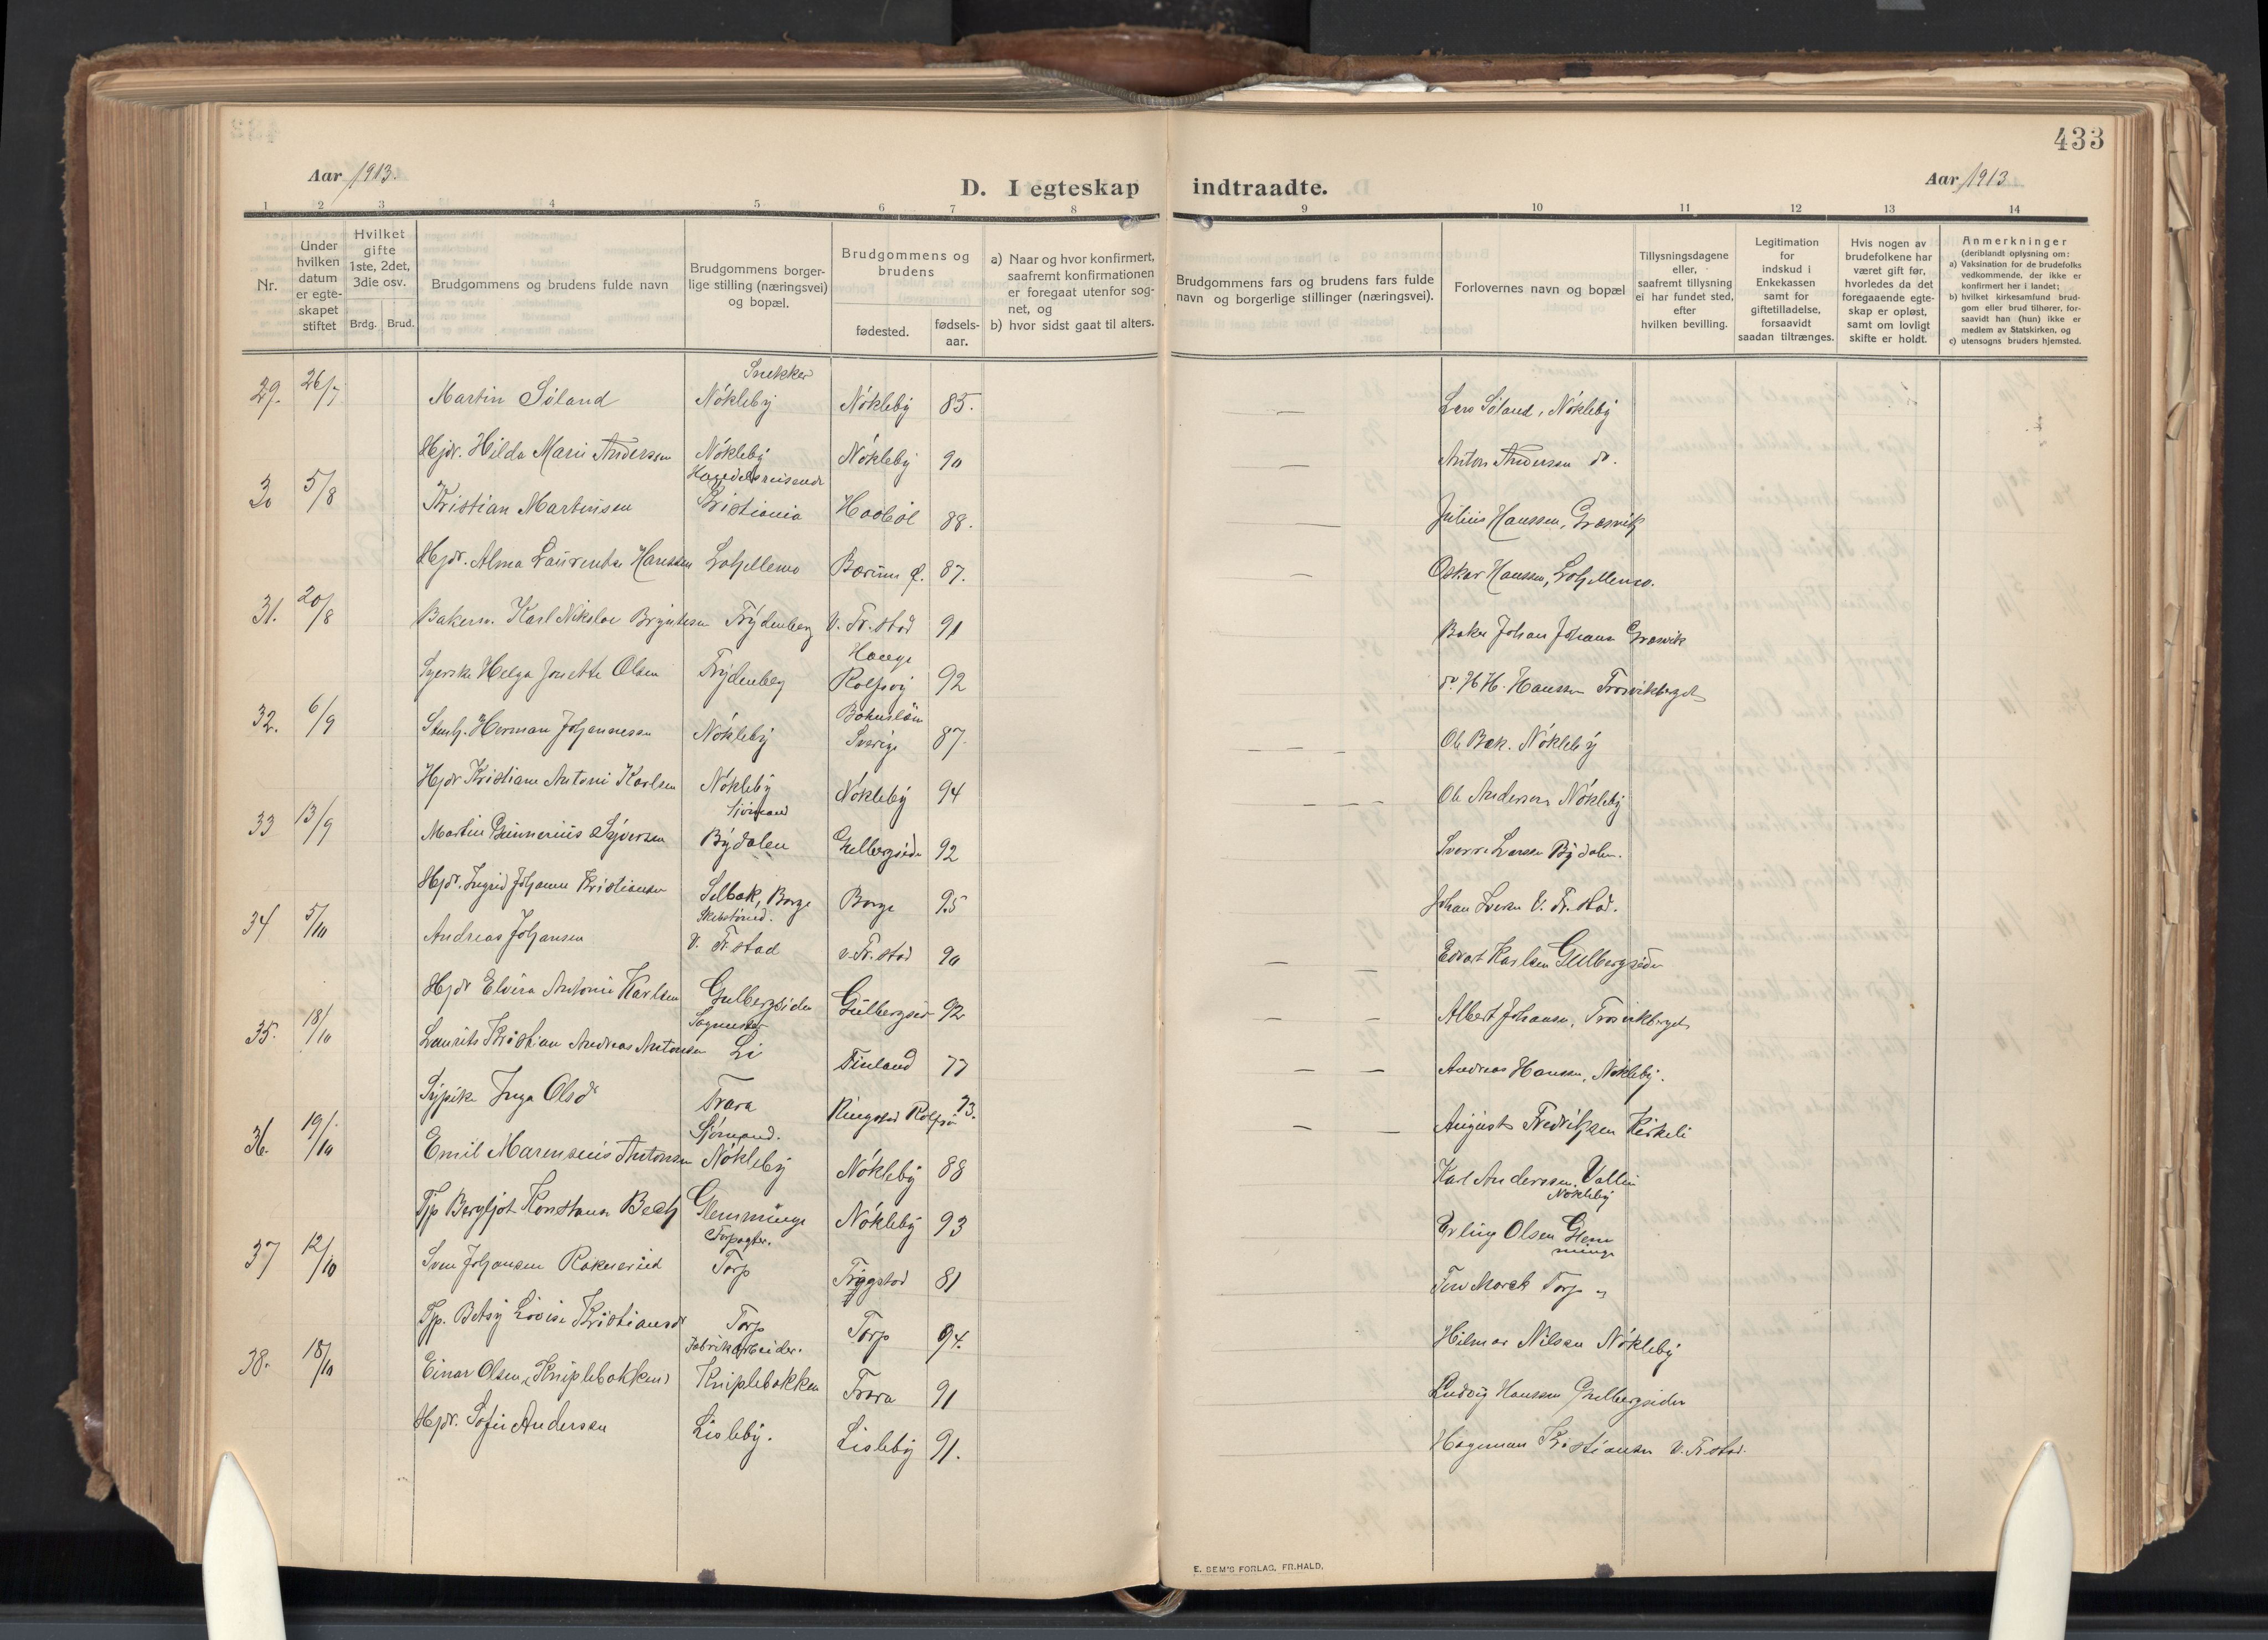 433
Aar 1913.
D. I egteskap indtraadte.
Aar 1913
1 2 3 4 5 6 7 8 9 10 11 12 13 14
Nr.
Under hvilken datum er egte-skapet stiftet
Hvilket gifte 1ste, 2det, 3die osv.
Brdg. Brud.
Brudgommens og brudens fulde navn
Brudgommens borger-lige stilling (næringsvei) og bopæl.
Brudgommens og brudens
fødested.
fødsels-aar.
a) Naar og hvor konfirmert, saafremt konfirmationen er foregaat utenfor sog-net, og
b) hvor sidst gaat til alters.
Brudgommens fars og brudens fars fulde navn og borgerlige stillinger (næringsvei).
Forlovernes navn og bopæl
Tillysningsdagene eller, saafremt tillysning ei har fundet sted, efter hvilken bevilling.
Legitimation for indskud i Enkekassen samt for giftetilladelse, forsaavidt saadan tiltrænges.
Hvis nogen av brudefolkene har været gift før, hvorledes da det foregaaende egte-skap er opløst, samt om lovligt skifte er holdt.
Anmerkninger
(deriblandt oplysning om:
a) Vaksination for de brudefolks vedkommende, der ikke er konfirmert her i landet;
b) hvilket kirkesamfund brud-gom eller brud tilhører, for-saavidt han (hun) ikke er medlem av Statskirken, og
c) utensogns bruders hjemsted.
Snekker
29. 26/7 Martin Søland Nökleby Nökleby 85. — Lars Søland, Nökleby
Hjdr. Hilda Marie Andersen Nökleby Nökleby 90 — Anton Andersen do.
Handelsreisende
30 5/8 Kristian Martinsen Kristiania Haabøl 88. — Julius Hanssen, Græsvik
Hjdr. Alma Laurentse Hanssen Bærum 87. — Oskar Hanssen,
31. 20/8 Bakersv. Karl Nikolai Frydenberg V. Fr.stad 91 Baker Johan Johansen Græsvik
Hauge
Syerske Helga Josette Olsen Frydenberg Rolfsöy 92 do. H. H. Hanssen Trosvikberget
Bohuslän
32. 6/9 Stenh. Herman Johannessen Nökleby Sverige 87. — — — Ole Bæk. Nökleby
Hjdr Kristiane Antoni Karlsen Nökleby Nökleby 94 — — — Ole Andersen Nökleby
Sjömand
33 13/9 Martin Gunnerius Syversen Bydalen Gulbergsiden 92 Sverre Larsen Bydalen.
Hjdr. Ingrid Johanne Kristiansen Selbak, Borge Borge 95 Johan Iversen V. Fr.stad.
Skibstömrd.
34 5/10 Andreas Johansen V. Fr.stad v. Fr.stad 90 — — Edvart Karlsen Gulbergsiden
Hjdr Elvira Antonie Karlsen Gulbergsiden Gulbergsid 92 — — Albert Johansen, Trosvikberget
Sagmester
35. 18/10 Laurits Kristian Andreas Antonsen Li Finland 77 — — Andreas Hansen, Nökleby.
Sypike Inga Olsdr Trara Ringstad Rolfsö 73. — — August Fredriksen Kirkeli
Sjömand.
36. 19/10 Emil Marensius Antonsen Nökleby Nökleby 88 Karl Anderssen, Vallin
Nökleby
Tjp Bergljot Konstanse Bech Glemminge Nökleby 93 Erling Olsen Glem
minge
Forpagter.
37 12/10 Sven Johansen Rakneruid Torp Trygstad 81 Torp
Tjp. Betsy Lovise Kristiansdr Torp Torp 94. Hilmar Nilsen Nökleby
Fabrikarbeider.
38. 18/10 Einar Olsen (Kniplebakken) Kniplebakken Trara 91 Ludvig Hanssen Gulbergsiden
Hjdr. Sofie Andersen Lisleby. Lisleby 91. Hageman Kristiansen V. Fr.stad.
E. SEM'S FORLAG, FR.HALD.